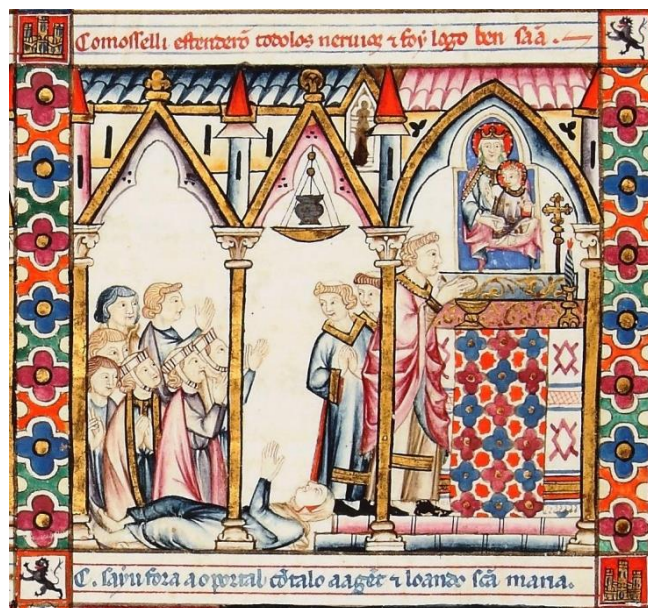 Como sselli estenderõ todolos neruios ⁊ foy logo ben sãa.
C. sayu fora ao portal cõtalo aa gẽte ⁊ loando scã maria.